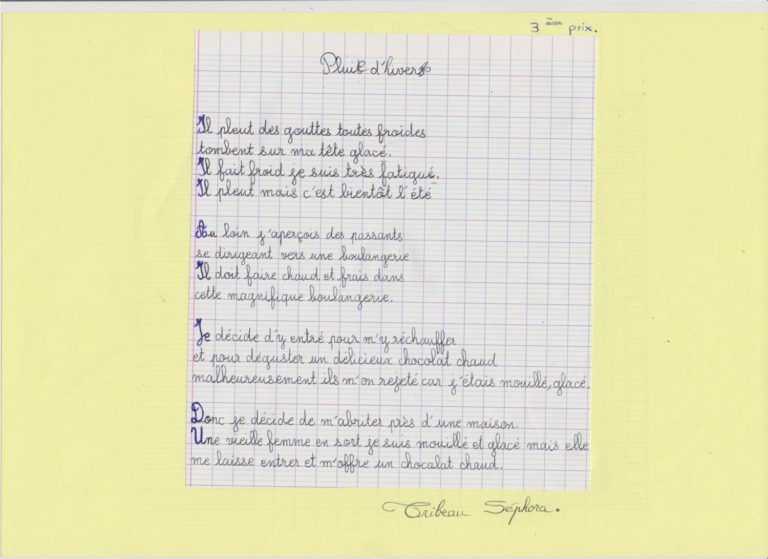 3 ème prix.
Pluie d'hivers
Il pleut des gouttes toutes froides
tombent sur ma tête glacé.
Il fait froid je suis très fatigué.
Il pleut mais c'est bientôt l'été
Au loin j'aperçois des passants
se dirigeant vers une boulangerie
Il doit faire chaud et frais dans
cette magnifique boulangerie.
Je décide d'y entré pour m'y réchauffer
et pour déguster un délicieux chocolat chaud
malheureusement ils m'on rejeté car j'étais mouillé, glacé.
Donc je décide de m'abriter près d'une maison.
Une vieille femme en sort je suis mouillé et glacé mais elle
me laisse entrer et m'offre un chocolat chaud.
Tribeau Séphora.